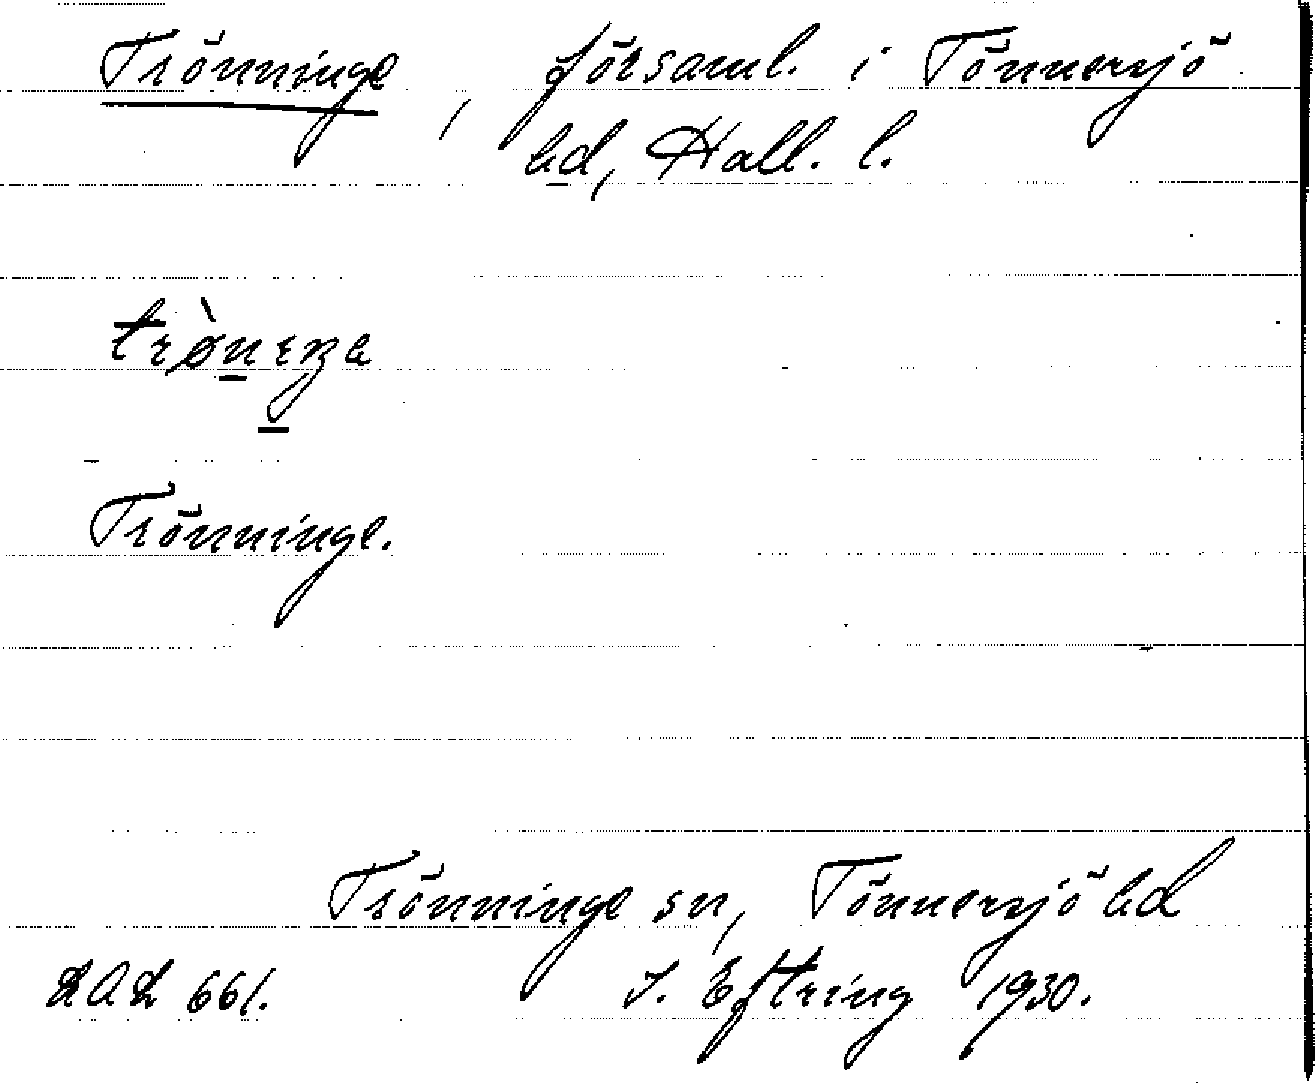 Trönninge, församl. i Tönnersjö
hd, Hall. l.
Trönninge.
Trönninge sn, Tönnersjö hd
LAL 661. J. Eftring 1930.